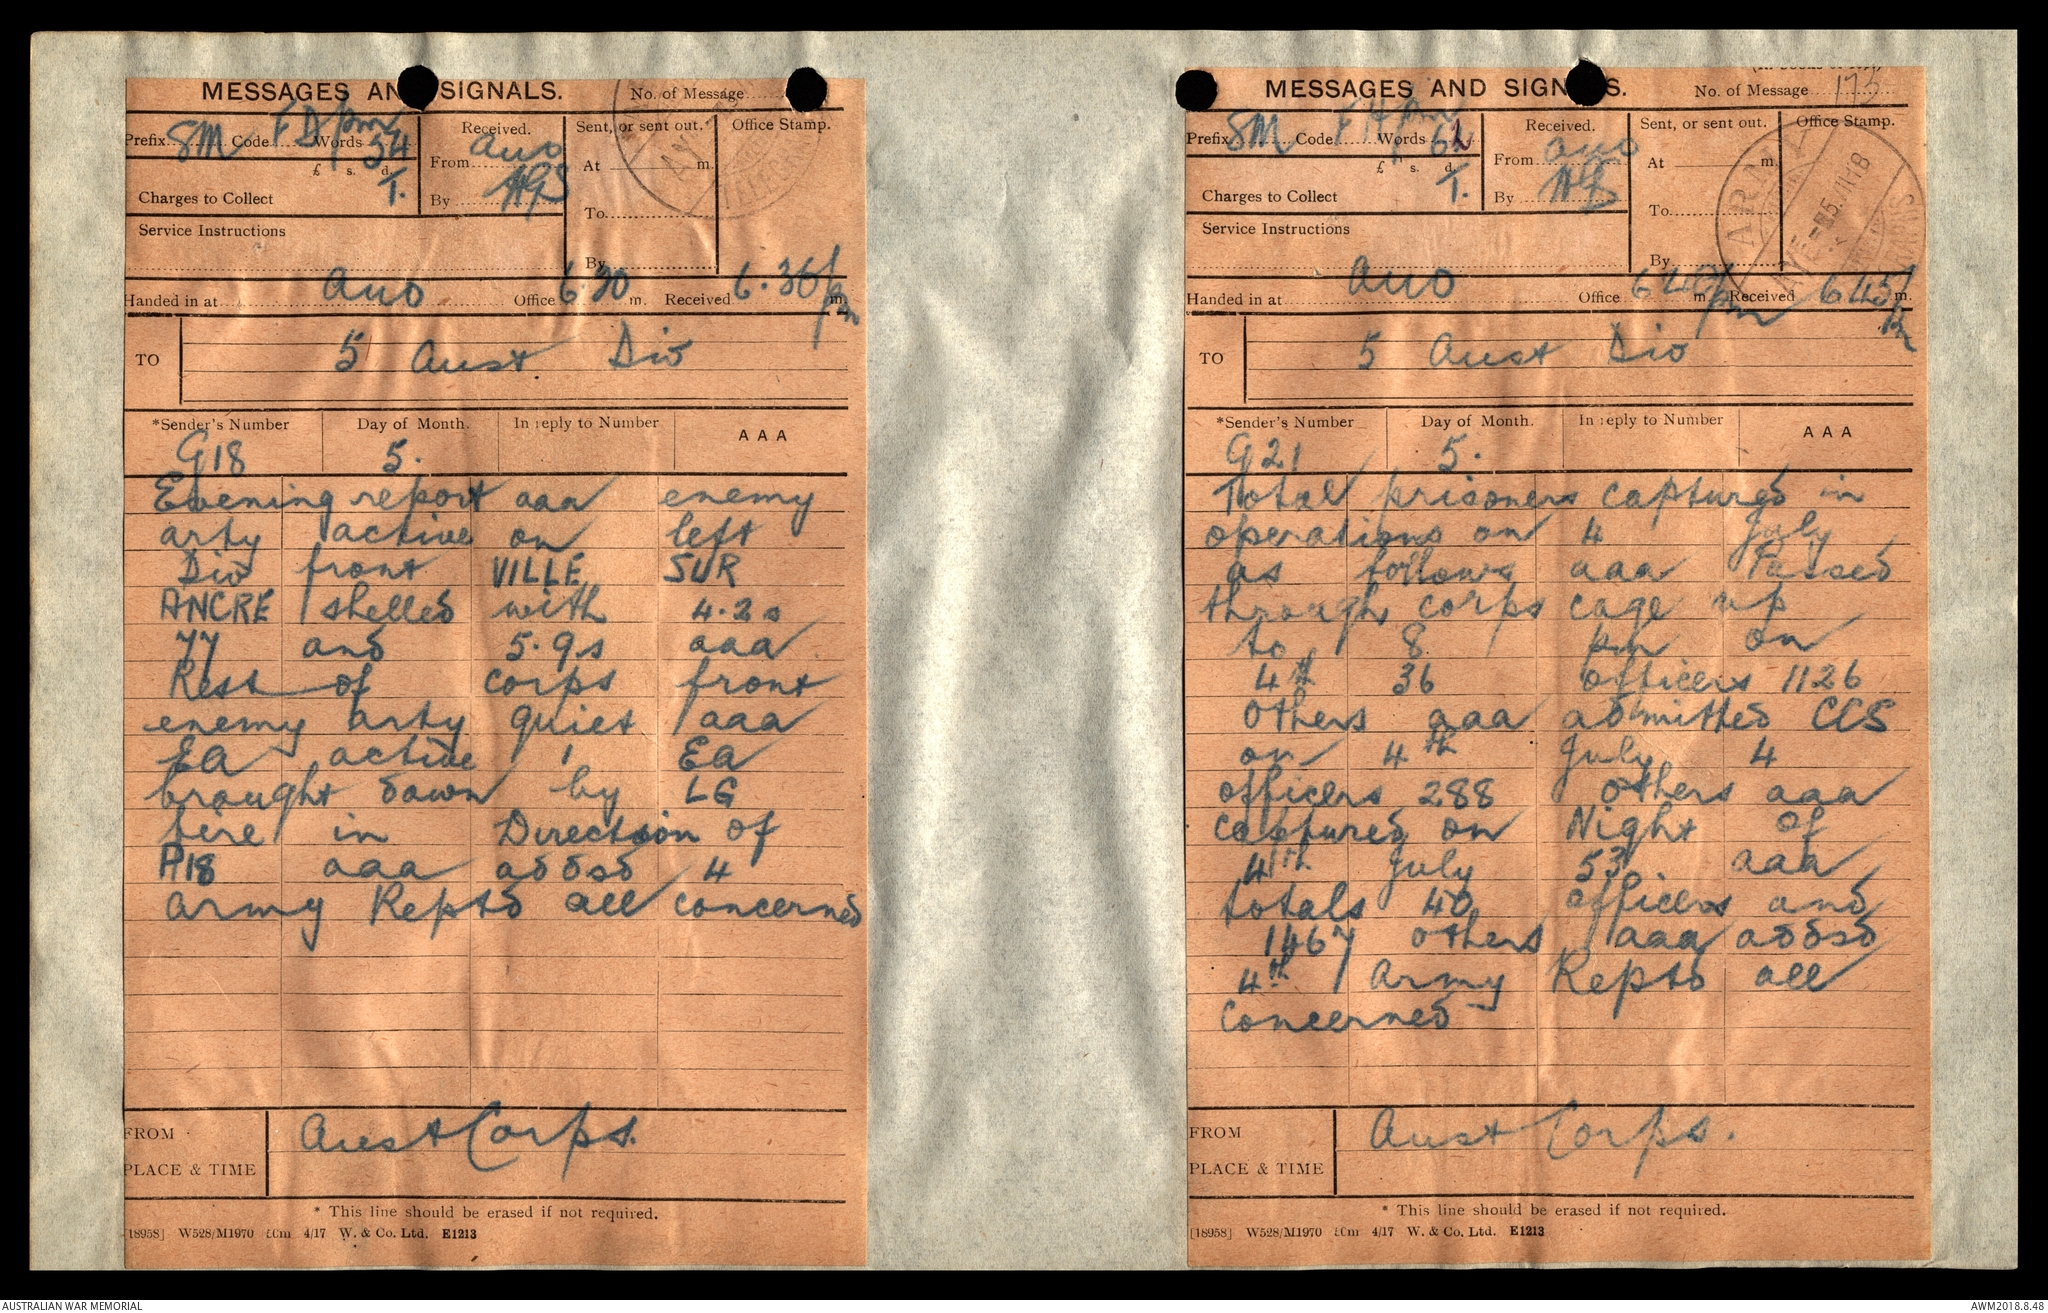 MESSAGES AND SIGNALS.
No. of Message
Prefix SM Code FD pm Words 54
£ s. d.
Charges to Collect T.
Service Instructions
Received.
From Auo
By HGS
Sent, or sent out.
At m.
To
By
Office Stamp.
Handed in at Auo Office 6.30 m. Received 6.36 pm m.
TO 5 Aust Div
*Sender's Number Day of Month. In reply to Number AAA
G18 5.
Evening report aaa enemy
arty active on left
Div front VILLE SUR
ANCRE shelled with 4.2s
77 and 5.9s aaa
Rest of corps front
enemy arty quiet aaa
EA active 1 EA
brought down by LG
fire in Direction of
P18 aaa addsd 4
army Reptd all concerned
FROM Aust Corps.
PLACE & TIME
* This line should be erased if not required.
[18958] W528/M1970 4/17 W. & Co. Ltd. E1213
MESSAGES AND SIGNALS.
No. of Message 175
Prefix SM Code FH pm Words 62
£ s. d.
Charges to Collect T.
Service Instructions
Received.
From Auo
By HGS
Sent, or sent out.
At m.
To
By
Office Stamp.
Handed in at Auo Office 6 40 pm m. Received 6 45 pm m.
TO 5 Aust Div
*Sender's Number Day of Month. In reply to Number AAA
G21 5.
Total prisoners captured in
operations on 4 July
as follows aaa Passed
through corps cage up
to 8 pm on
4th 36 officers 1126
others aaa admitted CCS
on 4th July 4
officers 288 others aaa
captured on Night of
4th July 53 aaa
totals 40 officers and
1467 others aaa addsd
4th Army Reptd all
concerned
FROM Aust Corps.
PLACE & TIME
* This line should be erased if not required.
[18958] W528/M1970 4/17 W. & Co. Ltd. E1213
AUSTRALIAN WAR MEMORIAL
AWM2018.8.48